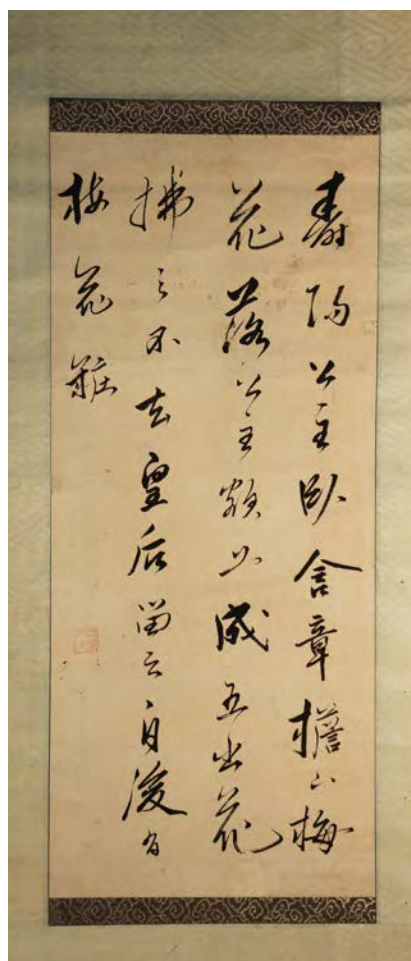 壽陽公主卧含章檐下梅
花落公主額上成五出花
拂之不去皇后留之自後有
梅花粧